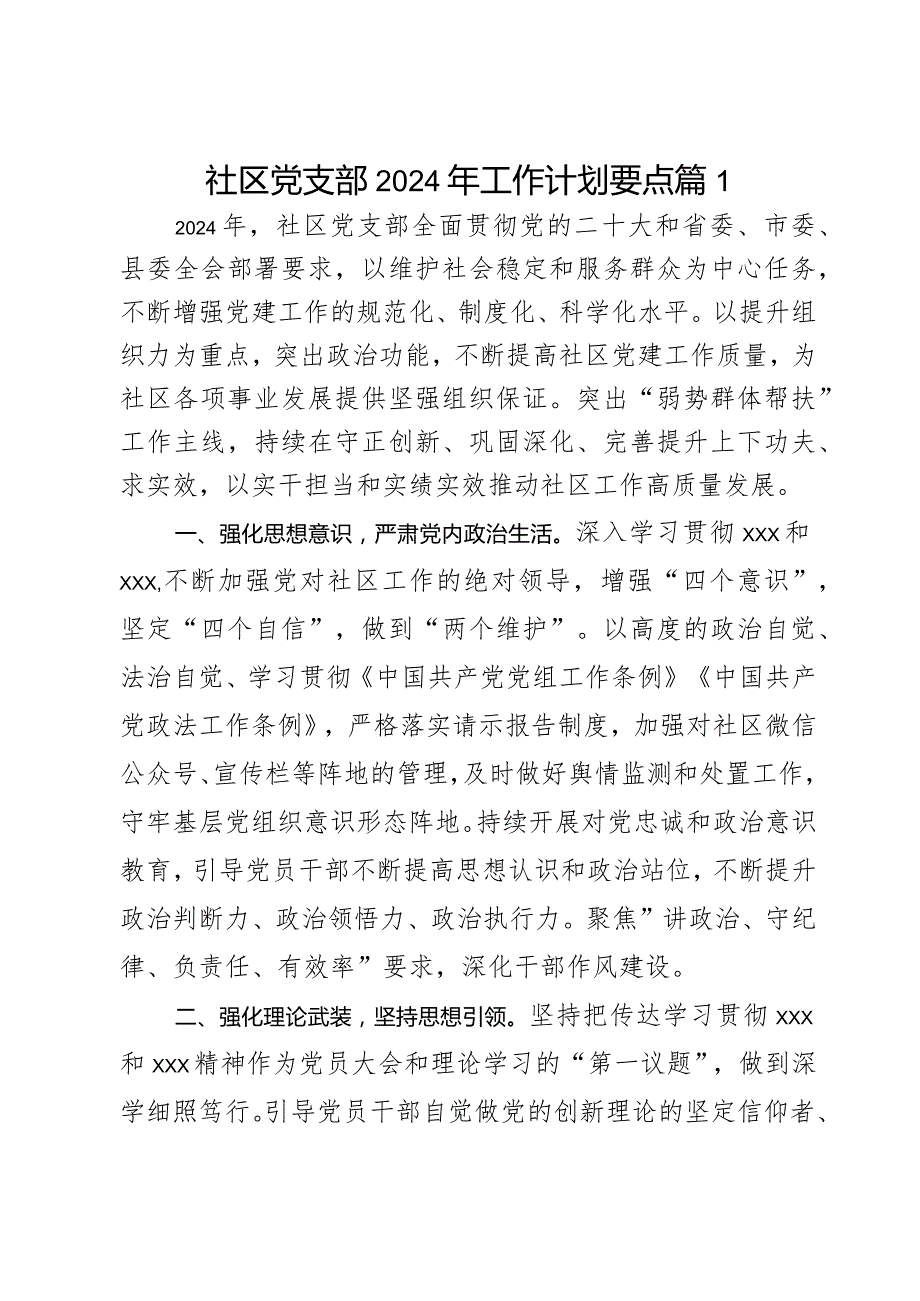 社区党支部2024年工作计划要点篇1
2024年，社区党支部全面贯彻党的二十大和省委、市委、
县委全会部署要求，以维护社会稳定和服务群众为中心任务，
不断增强党建工作的规范化、制度化、科学化水平。以提升组
织力为重点，突出政治功能，不断提高社区党建工作质量，为
社区各项事业发展提供坚强组织保证。突出“弱势群体帮扶”
工作主线，持续在守正创新、巩固深化、完善提升上下功夫、
求实效，以实干担当和实绩实效推动社区工作高质量发展。
一、强化思想意识，严肃党内政治生活。深入学习贯彻xxx和
xxx,不断加强党对社区工作的绝对领导，增强“四个意识”，
坚定“四个自信”，做到“两个维护”。以高度的政治自觉、
法治自觉、学习贯彻《中国共产党党组工作条例》《中国共产
党政法工作条例》，严格落实请示报告制度，加强对社区微信
公众号、宣传栏等阵地的管理，及时做好舆情监测和处置工作，
守牢基层党组织意识形态阵地。持续开展对党忠诚和政治意识
教育，引导党员干部不断提高思想认识和政治站位，不断提升
政治判断力、政治领悟力、政治执行力。聚焦”讲政治、守纪
律、负责任、有效率”要求，深化干部作风建设。
二、强化理论武装，坚持思想引领。坚持把传达学习贯彻xxx
和xxx精神作为党员大会和理论学习的“第一议题”，做到深
学细照笃行。引导党员干部自觉做党的创新理论的坚定信仰者、